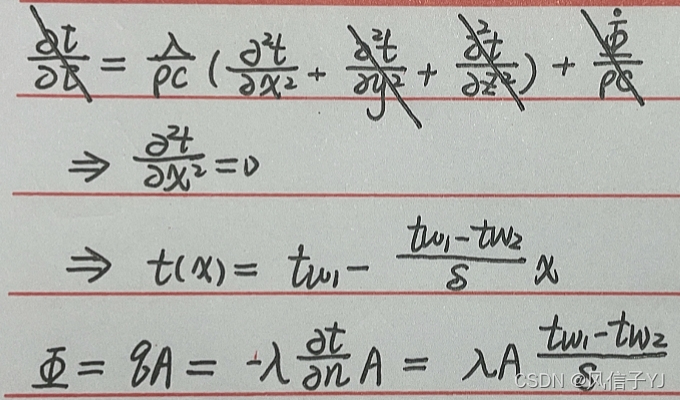 ∂t/∂τ = λ/ρc (∂²t/∂x² + ∂²t/∂y² + ∂²t/∂z²) + Φ̇/ρc
⇒ ∂²t/∂x² = 0
⇒ t(x) = tw₁ - (tw₁-tw₂)/δ x
Φ = qA = -λ ∂t/∂n A = λA (tw₁-tw₂)/δ
CSDN @风信子YJ